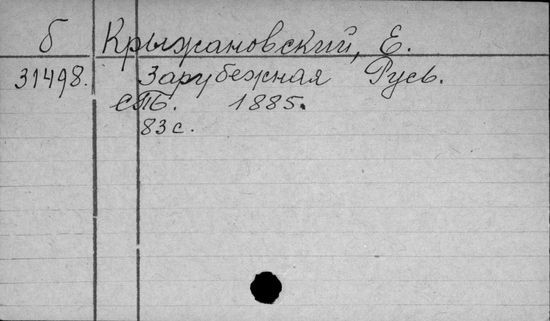 б Крыжановский, Е.
31498. Зарубежная Русь.
СПб. 1885.
83 с.